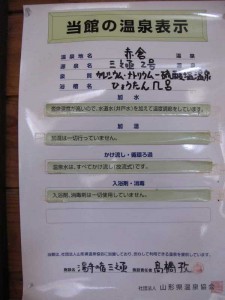 当館の温泉表示
温泉地名 赤倉 温泉
源泉名 三之亟2号
泉質 カルシウム・ナトリウム-硫酸塩温泉
浴槽名 ひょうたん風呂
加水
源泉温度が高いので、水温水(井戸水)を加えて温度調整をしています。
加温
加温は一切行っていません。
かけ流し・循環ろ過
温泉水は、すべてかけ流し(放流式)です。
入浴剤・消毒
入浴剤、消毒剤は一切使用していません。
湯守の宿三之亟
高橋孜
社団法人 山形県温泉協会